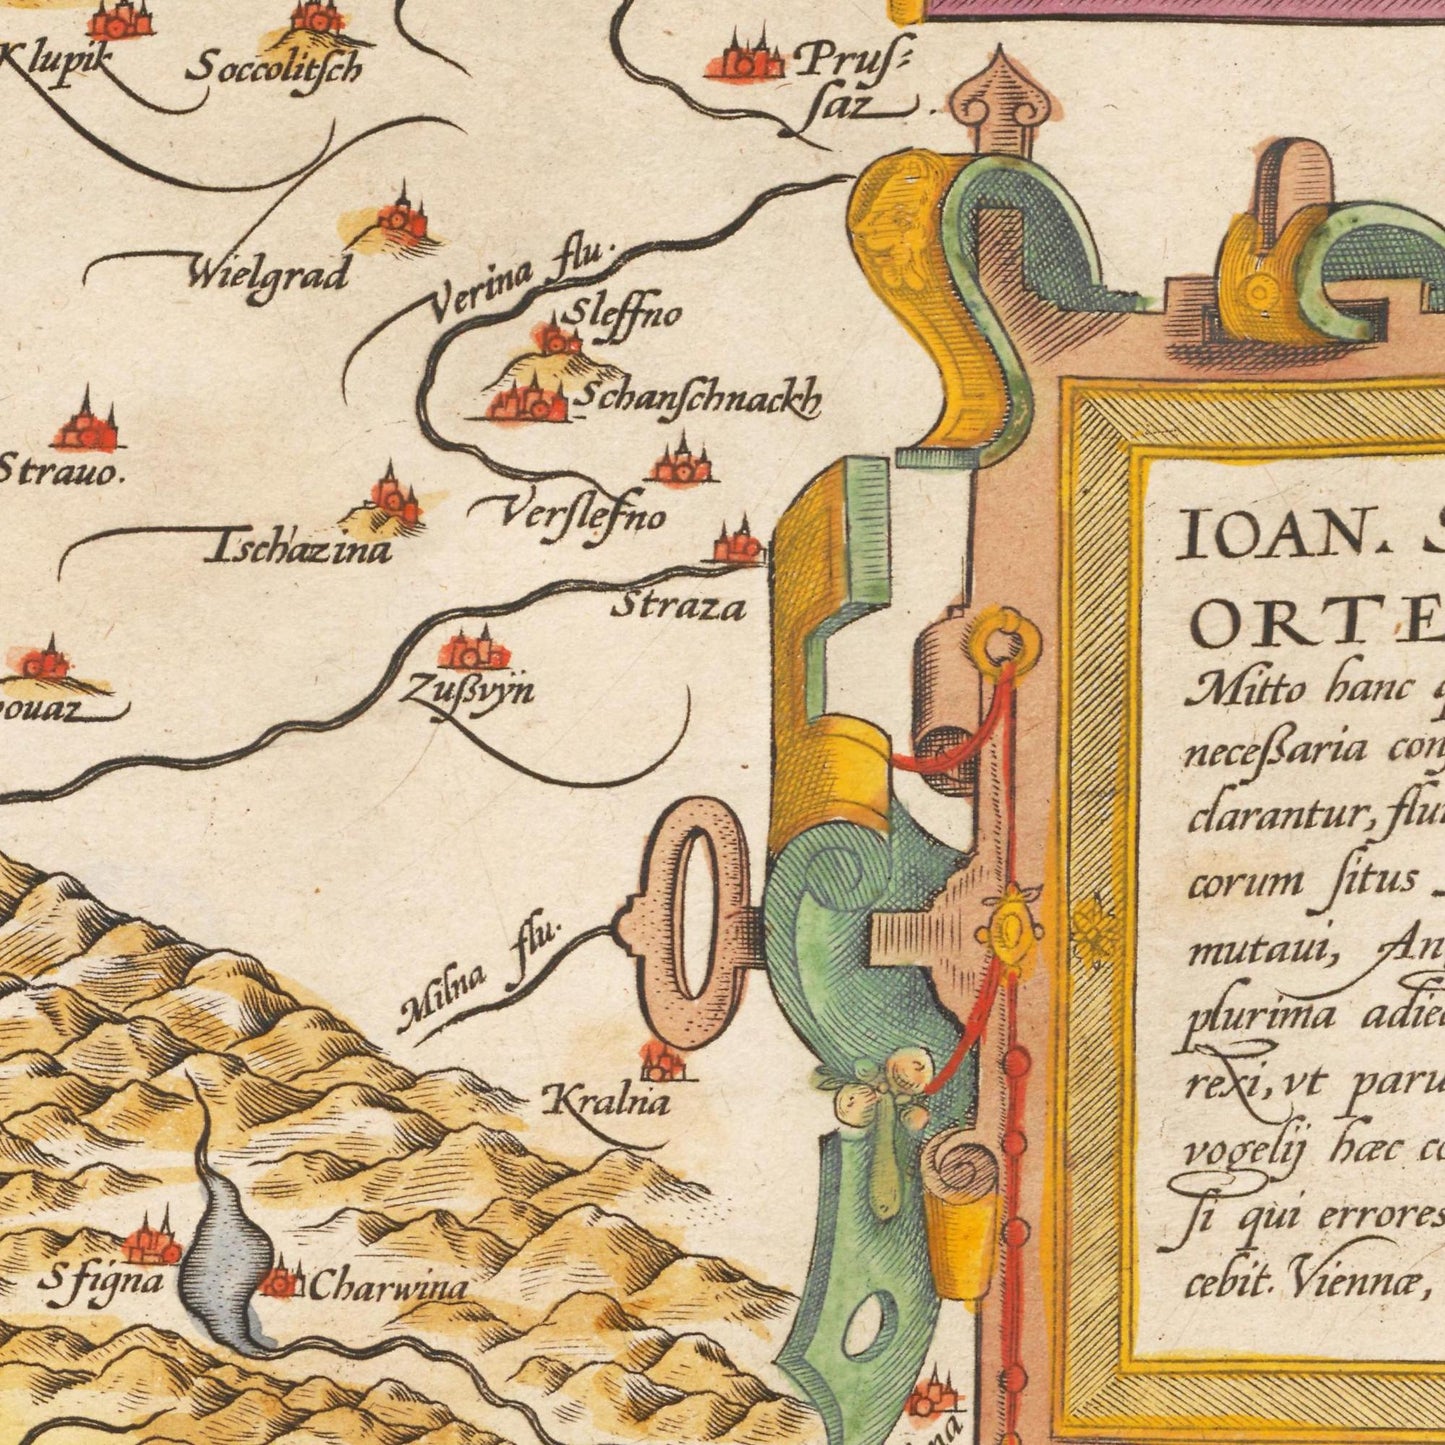 Klupik
Soccolitſch
Pruſ-
ſaz
Wielgrad
Verina flu.
Sleffno
Schanſchnackh
Strauo.
Verſlefno
Tschazina
Straza
Zußvÿn
ouaz
Milna flu.
Kralna
Sfigna
Charwina
na
IOAN. S
ORTE
Mitto hanc q
neceßaria con
clarantur, flu
corum ſitus
mutaui, An
plurima adie
rexi, vt paru
vogelij hæc co
ſi qui errores
cebit. Viennæ,